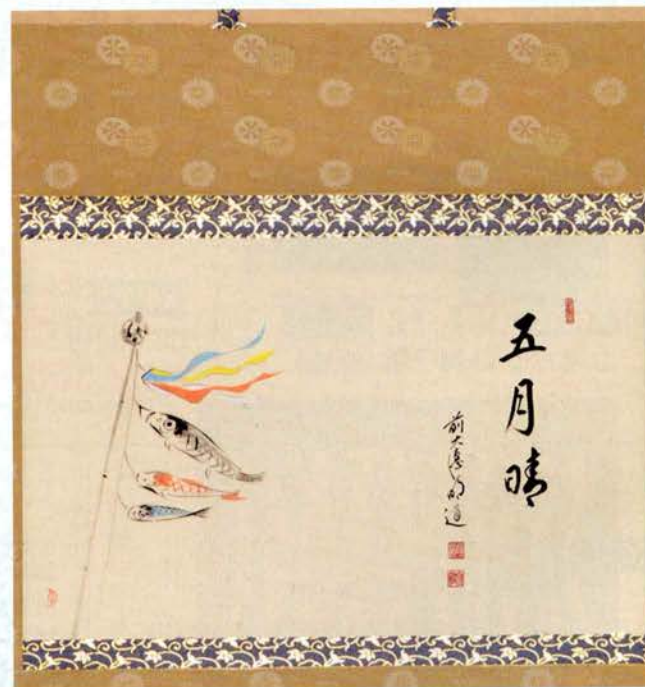 五月晴
前大徳明道